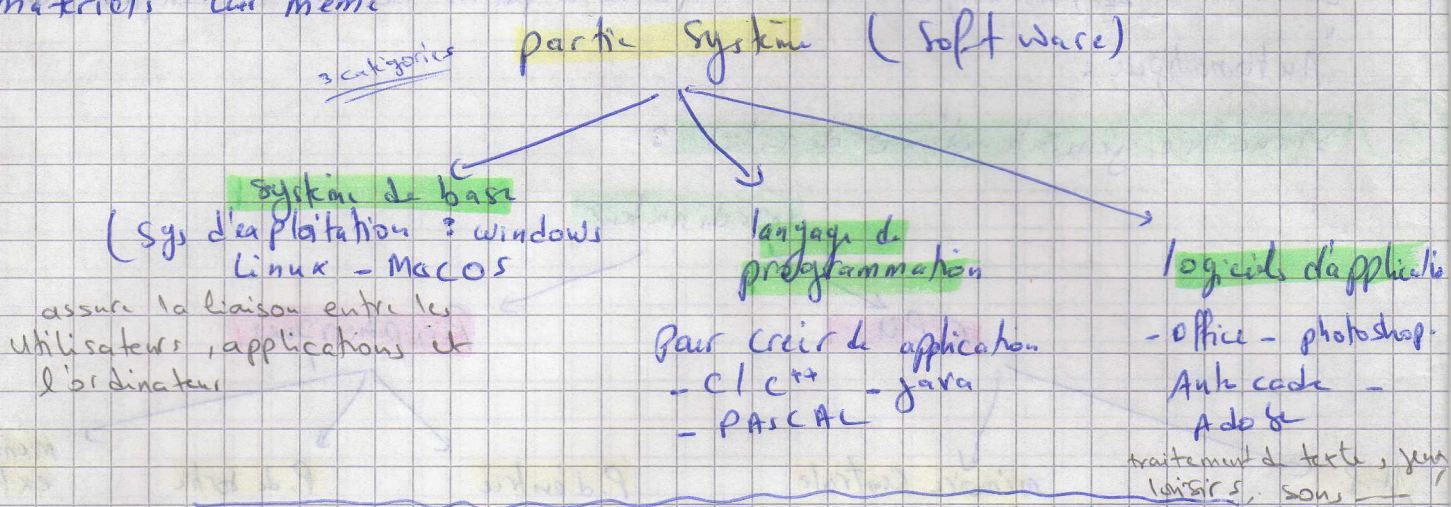 matériels lui même
partie Système (Software)
3 catégories
Système de base
(Sys d'exploitation : windows
Linux - MacOS
assure la liaison entre les
utilisateurs, applications et
l'ordinateur
langage de
programmation
Pour créir de application
- C/C++ - java
- PASCAL
logiciels d'applicatio
- Office - photoshop.
Auto cade -
Adobe
traitement de texte, jeux,
loisirs, sons